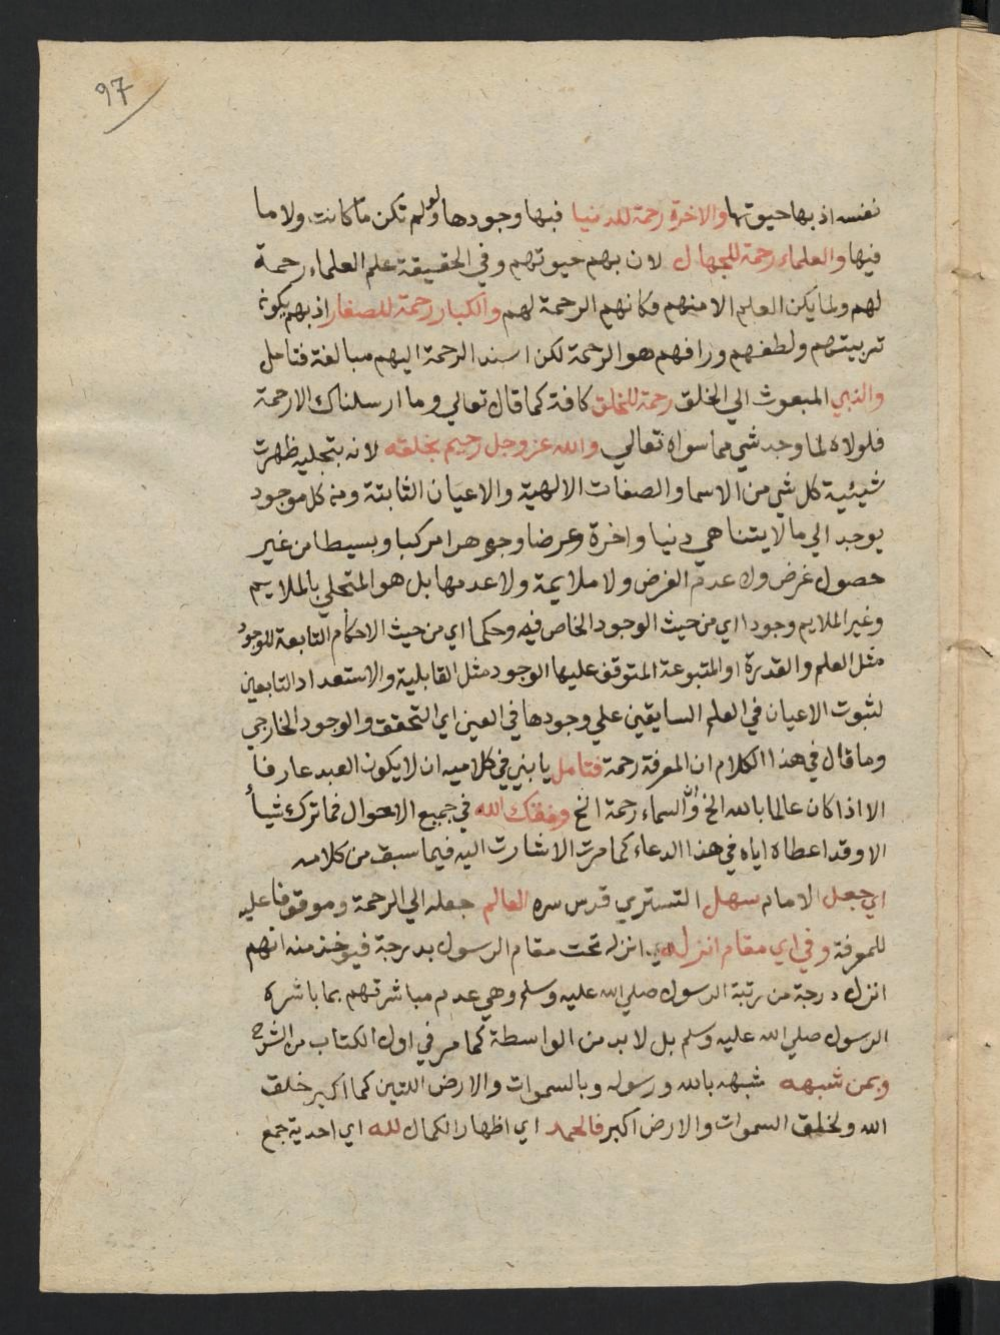 97
نفسه اذ بها حيوتها والاخرة رحمة للدنيا فبها وجودها ولو لم تكن ما كانت ولا ما
فيها والعلماء رحمة للجهال لان بهم حيوتهم وفي الحقيقة علم العلماء رحمة
لهم ولما يكن العلم الا منهم فكانهم الرحمة لهم والكبار رحمة للصغار اذ بهم يكون
تربيتهم ولطفهم ورافهم هو الرحمة لكن اسند الرحمة اليهم مبالغة فتامل
والنبي المبعوث الي الخلق رحمة للخلق كافة كما قال تعالي وما ارسلناك الا رحمة
فلولاه لما وجد شي مما سواه تعالي والله عز وجل رحيم بخلقه لانه بتجليه ظهرت
شيئية كل شي من الاسما والصفات الالهية والاعيان الثابتة ومنه كل موجود
يوجد الي ما لا يتناهي دنيا واخرة وعرضا وجوهرا مركبا وبسيطا من غير
حصول غرض ولا عدم الغرض ولا ملايمة ولا عدمها بل هو المتحلي بالملايم
وغير الملايم وجودا اي من حيث الوجود الخاص فيه وحكما اي من حيث الاحكام التابعة للوجود
مثل العلم والقدرة او المتبوعة المتوقف عليها الوجود مثل القابلية والاستعداد التابعين
لثبوت الاعيان في العلم السابقين علي وجودها في العين اي التحقق والوجود الخارجي
وما قال في هذا الكلام ان المعرفة رحمة فتامل يا بني في كلاميه ان لا يكون العبد عارفا
الا اذا كان عالما بالله الخ وان السماء رحمة الخ وفقك الله في جميع الاحوال فما ترك شيأ
الا وقد اعطاه اياه في هذا الدعاء كما مرت الاشارت اليه فيما سبق من كلامه
اي جعل الامام سهل التستري قدس سره العالم جعله الي الرحمة وموقوفا عليه
للمعرفة وفي اي مقام انزله اي انزله تحت مقام الرسول بدرجة فيوخذ منه انهم
انزل درجة من رتبة الرسول صلي الله عليه وسلم وهي عدم مباشرتهم بما باشره
الرسول صلي الله عليه وسلم بل لا بد من الواسطة كما مر في اول الكتاب من الشرح
وبمن شبهه شبهه بالله ورسوله وبالسموات والارض اللتين كما اكبر خلق
الله ولخلق السموات والارض اكبر فالحمد اي اظهار الكمال لله اي احدية جمع